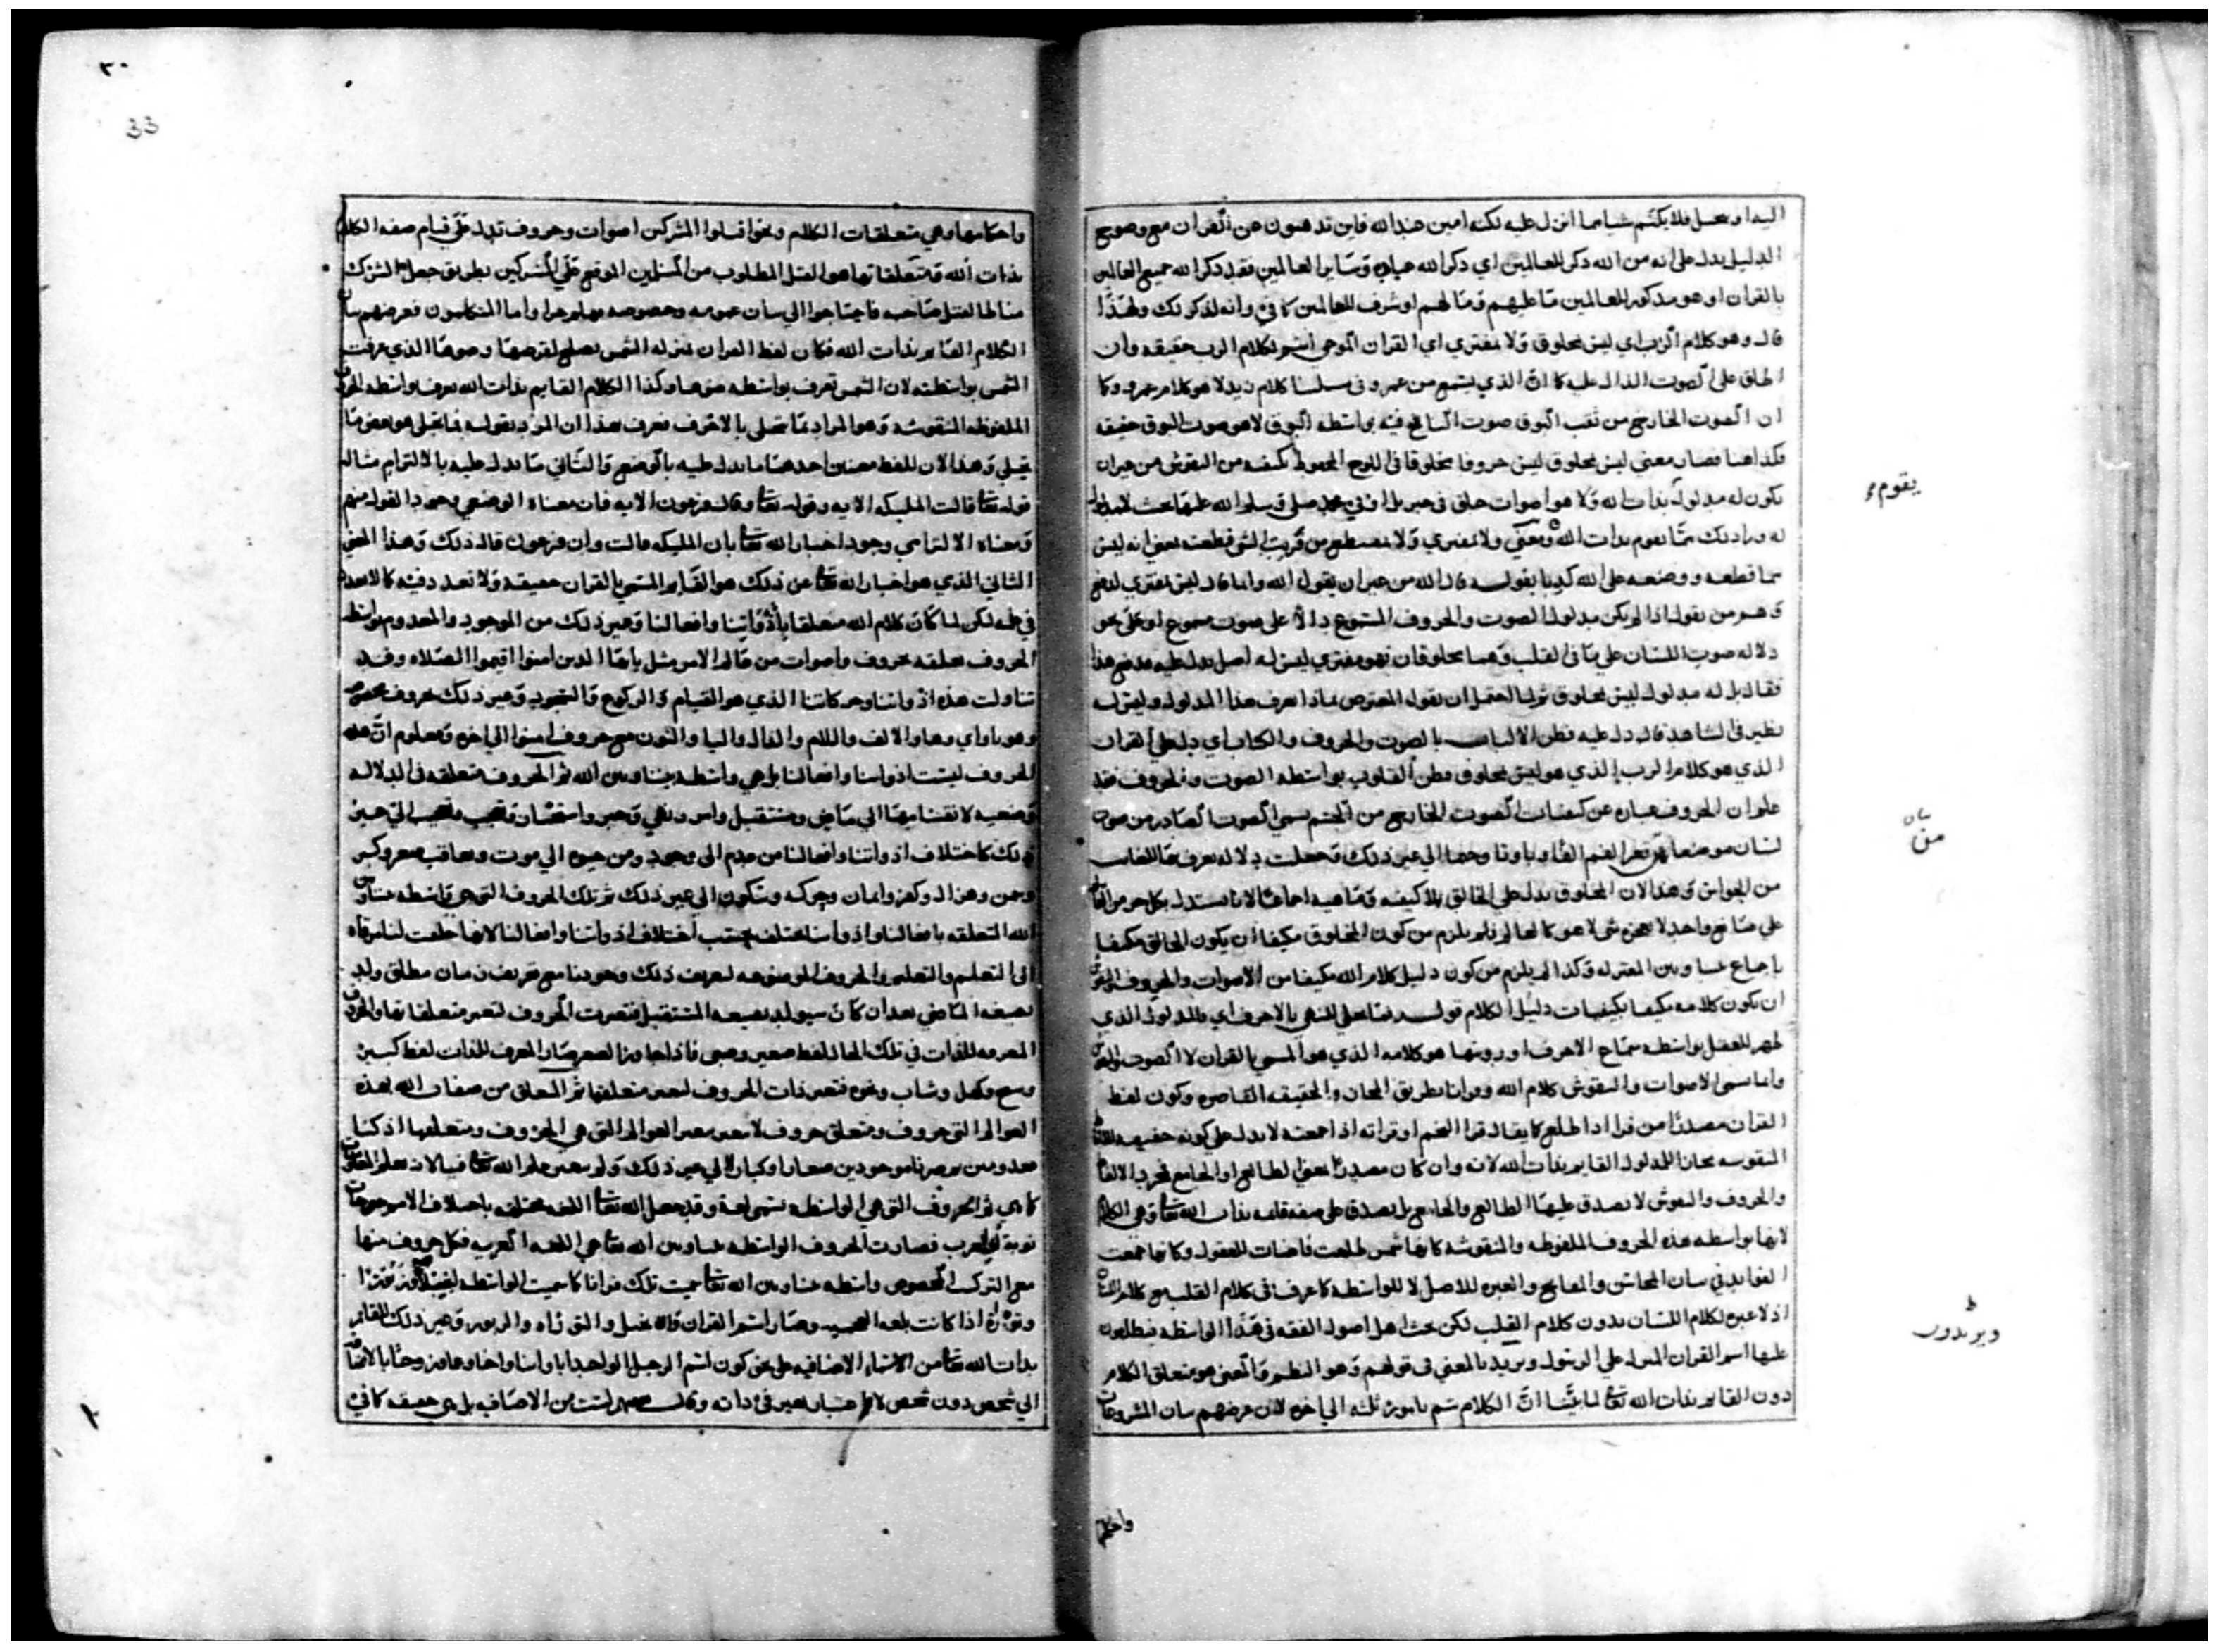 اليه او بخل فلا يكتم شيا مما انزل عليه لكنه امين عند الله فاين تذهبون عن القران مع وضوح
الدليل يدل على انه من الله ذكر للعالمين اي ذكر الله عباده وساير العالمين فقد ذكر الله جميع العالمين
بالقران او هو مذكور للعالمين ما عليهم وما لهم او شرف للعالمين كما في وانه لذكر لك ولهذا
قال وهو كلام الرب اي ليس بمخلوق ولا مفترى اي القران الموحى اسم لكلام الرب حقيقه وان
اطلق على الصوت الدال عليه كما ان الذي يسمع من عمرو كلام زيد لا هو كلام عمرو وكما
ان الصوت الخارج من ثقب البوق صوت النافخ فيه بواسطه البوق لا هو صوت البوق حقيقه
فكذا هنا فصار معنى ليس بمخلوق ليس حروفا مخلوقا في اللوح المحفوظ من النقوش من غيران
يكون له مدلول بذات الله ولا هو اصوات خلق في جبريل او في محمد صلى وسلم الله عليهما بحيث لا مدلول
له وراء ذلك مما يقوم بذات الله ومعنى ولا مفترى ولا مقتطع من فريت الشي قطعته يعني انه ليس
مما قطعه ووضعه على الله كذبا بقوله قال الله من غير ان يقول الله وانما قال ليس بمفترى لدفع
وهم من يقول اذا لم يكن مدلول الصوت والحروف المسموع دالا على صوت مسموع او على نحو
دلاله صوت اللسان على ما في القلب وهما مخلوقان فهو مفترى ليس له اصل يدل عليه فدفع هذا
فقال بل له مدلول ليس بمخلوق ثم لما احتمل ان يقول المعترض بماذا يعرف هذا المدلول وليس له
نظير في الشاهد قال دل عليه فطن الالباب بالصوت والحروف والكتاب اي دل على القران
الذي هو كلام الرب الذي هو ليس بمخلوق فطن القلوب بواسطه الصوت والحروف فقد
علم ان الحروف عباره عن كيفيات الصوت الخارج من الجسم يسمى الصوت الصادر من صوت
لسان موضعها قعر الفم الفا وبا وتا وحما الى غير ذلك وجعلت دلاله يعرف بها الغايب
من الحواس وهذا لان المخلوق يدل على الخالق بلا كيفيه وماهيه اجماعا لانا نستدل بكل جزء من العالم
على صانع واحد لا يتجزى لا هو كالعالم فلم يلزم من كون المخلوق مكيفا ان يكون الخالق مكيفا
باجماع بيننا وبين المعتزله وكذا لم يلزم من كون دليل كلام الله مكيفا من الاصوات والحروف
ان يكون كلامه مكيفا بكيفيات دليل الكلام قوله فما تجلى للنهى بالاحرف اي فالمدلول الذي
ظهر للعقل بواسطه سماع الاحرف او رويتها هو كلامه الذي هو المسمى بالقران لا الصوت
وانما سمى الاصوات والنقوش كلام الله وقرانا بطريق المجاز والحقيقه القاصره وكون لفظ
القران مصدرا من قرا اذا طلع كما يقال قرا النجم او قراته اذا جمعته لا يدل على كونه حقيقه
المنقوشه مجاز للمدلول القايم بذات الله لانه وان كان مصدرا بمعنى الطالع او الجامع
والحروف والنقوش لا يصدق عليها الطالع والجامع بل يصدق على صفه قايمه بذات الله تعا وهي الكلام
لانها بواسطه هذه الحروف الملفوظه والمنقوشه كانها شمس طلعت فاضات للعقول وكانها جمعت
الفوايد في بيان المحاسن والقبايح والعبره للاصل لا للواسطه كما عرف في كلام القلب مع كلام اللسان
اذ لا عبره لكلام اللسان بدون كلام القلب لكن بحث اهل اصول الفقه في هذا الواسطه فيطلقون
عليها اسم القران المنزل على الرسول ويريد بالمعنى في قولهم وهو النظم والمعنى هو متعلق الكلام
دون القايم بذات الله تعا لما بينا ان الكلام يتم بامور ثلثه الى اخره لان غرضهم بيان المشروعات
يقوم
بيان
من
ويريدون
واحكامها
٣٠
33
واحكامها وهي متعلقات الكلام ونحو اقتلوا المشركين اصوات وحروف تدل على قيام صفه الكلام
بذات الله ومتعلقاتها هو القتل المطلوب من المسلمين الموقع على المشركين بطريق جعل الشرك
مناطا لقتل صاحبه فاحتاجوا الى بيان عمومه وخصوصه وهلم جرا واما المتكلمون فغرضهم بيان
الكلام القايم بذات الله فكان لفظ القران بمنزله الشمس يصلح لقرصها وضوها الذي عرفت
الشمس بواسطته لان الشمس تعرف بواسطه ضوها وكذا الكلام القايم بذات الله يعرف بواسطه الحروف
الملفوظه المنقوشه وهو المراد بما تجلى بالاحرف فعرف بهذا ان المراد بقوله فما تجلى هو بعض ما
تجلى وهذا لان للفظ معنيين احدهما ما يدل عليه بالوضع والثاني ما يدل عليه بالالتزام مثاله
قوله تعا قالت المليكه الايه وقوله تعا وقال فرعون الايه فان معناه الوضعي وجود القول منهم
ومعناه الالتزامي وجود اخبار الله تعا بان المليكه قالت وان فرعون قال ذلك وهذا المعنى
الثاني الذي هو اخبار الله تعا عن ذلك هو القايم المسمى بالقران حقيقه ولا تعدد فيه كما لا تعدد
في علمه لكن لما كان كلام الله متعلقا بأذواتنا وافعالنا وغير ذلك من الموجود والمعدوم بواسطه
الحروف تعلقه بحروف واصوات من عالم الامر مثل يايها الذين امنوا اقيموا الصلاه وقد
تناولت هذه اذواتنا وحركاتنا الذي هو القيام والركوع والسجود وغير ذلك بحروف مخصوصه
وهو يا واي وها والالف واللام والذال واليا والنون مع حروف امنوا الى اخره ومعلوم ان هذه
الحروف ليست اذواتنا وافعالنا بل هي واسطه بيننا وبين الله ثم الحروف متعلقه في الدلاله
وضعيه لانقسامها الى ماض ومستقبل وامر ونهي وخبر واستفسار وتعجب الى غير
ذلك كاختلاف اذواتنا وافعالنا من عدم الى وجود ومن حيوه الى موت وتعاقب صغر وكبر
وسمن وهزال وكفر وايمان وحركه وسكون الى غير ذلك ثم تلك الحروف التي هي واسطه بيننا وبين
الله المتعلقه بافعالنا واذواتنا تختلف بحسب اختلاف اذواتنا وافعالنا لانها خلقت لنا مرقاه
الى التعلم والتعليم والحروف الموضوعه لتعريف ذلك وجودنا مع تعريف زمان مطلق ولد
بصيغه الماضي بعد ان كان سيولد بصيغه المستقبل فتغيرت الحروف لتغير متعلقاتها والحروف
المعرفه للذات في تلك الحال لفظ صغير وصبي فاذا جاوزنا الصغر صار المعرف للذات لفظ كبير
وشيخ وكهل وشاب ونحوه فتغيرت ذات الحروف لتغير متعلقها ثم المتعلق من صفات الله بهذه
العوالم التي حروف ومتعلق حروف لا يتغير بتغير العوالم التي هي الحروف ومتعلقها اذ كنا
معدومين ثم صرنا موجودين صغارا وكبارا الى غير ذلك ولم يتغير علم الله تعا فينا لانه يعلم المعلومات
كما هي ثم الحروف التي هي الواسطه تسمى لغة وقد جعل الله تعا اللغه مختلفه باختلاف الامر
نوبة العرب فصارت الحروف الواسطه بيننا وبين الله تعا هي اللغه العربيه فكل حروف منها
مع التركيب المخصوص واسطه بيننا وبين الله تعا سميت تلك قرانا كما سميت الواسطه
وتوراة اذا كانت بلغه العجميه وصار اسم القران والانجيل والتوراه والزبور وغير ذلك للقايم
بذات الله تعا من الاسماء الاضافيه على نحو كون اسم الرجل الواحد ابا وابنا واخا وعما وزوجا بالاضافه
الى شخص دون شخص لا باعتبار تغير في ذاته وقال بعضهم ليست من الاضافيه بل هي حقيقه كما في